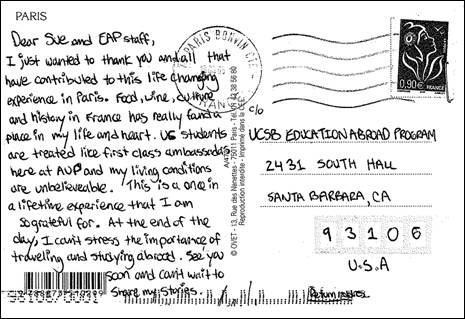 PARIS
Dear Sue and EAP staff,
I just wanted to thank you and all that
have contributed to this life changing
experience in Paris. Food, wine, culture
and history in France has really found a
place in my life and heart. US students
are treated like first class ambassadors
here at AUP and my living conditions
are unbelievable. This is a once in
a lifetime experience that I am
so grateful for. At the end of the
day, I can't stress the importance of
traveling and studying abroad. See you
soon and can't wait to
share my stories.
PARIS BONVIN CTC
0,90€ FRANCE
c/o
UCSB EDUCATION ABROAD PROGRAM
2431 SOUTH HALL
SANTA BARBARA, CA
93106
U.S.A
Return address
© OVET - 13, Rue des Nanettes - 75011 Paris - Tél.
Reproduction interdite - imprimé dans la CEE